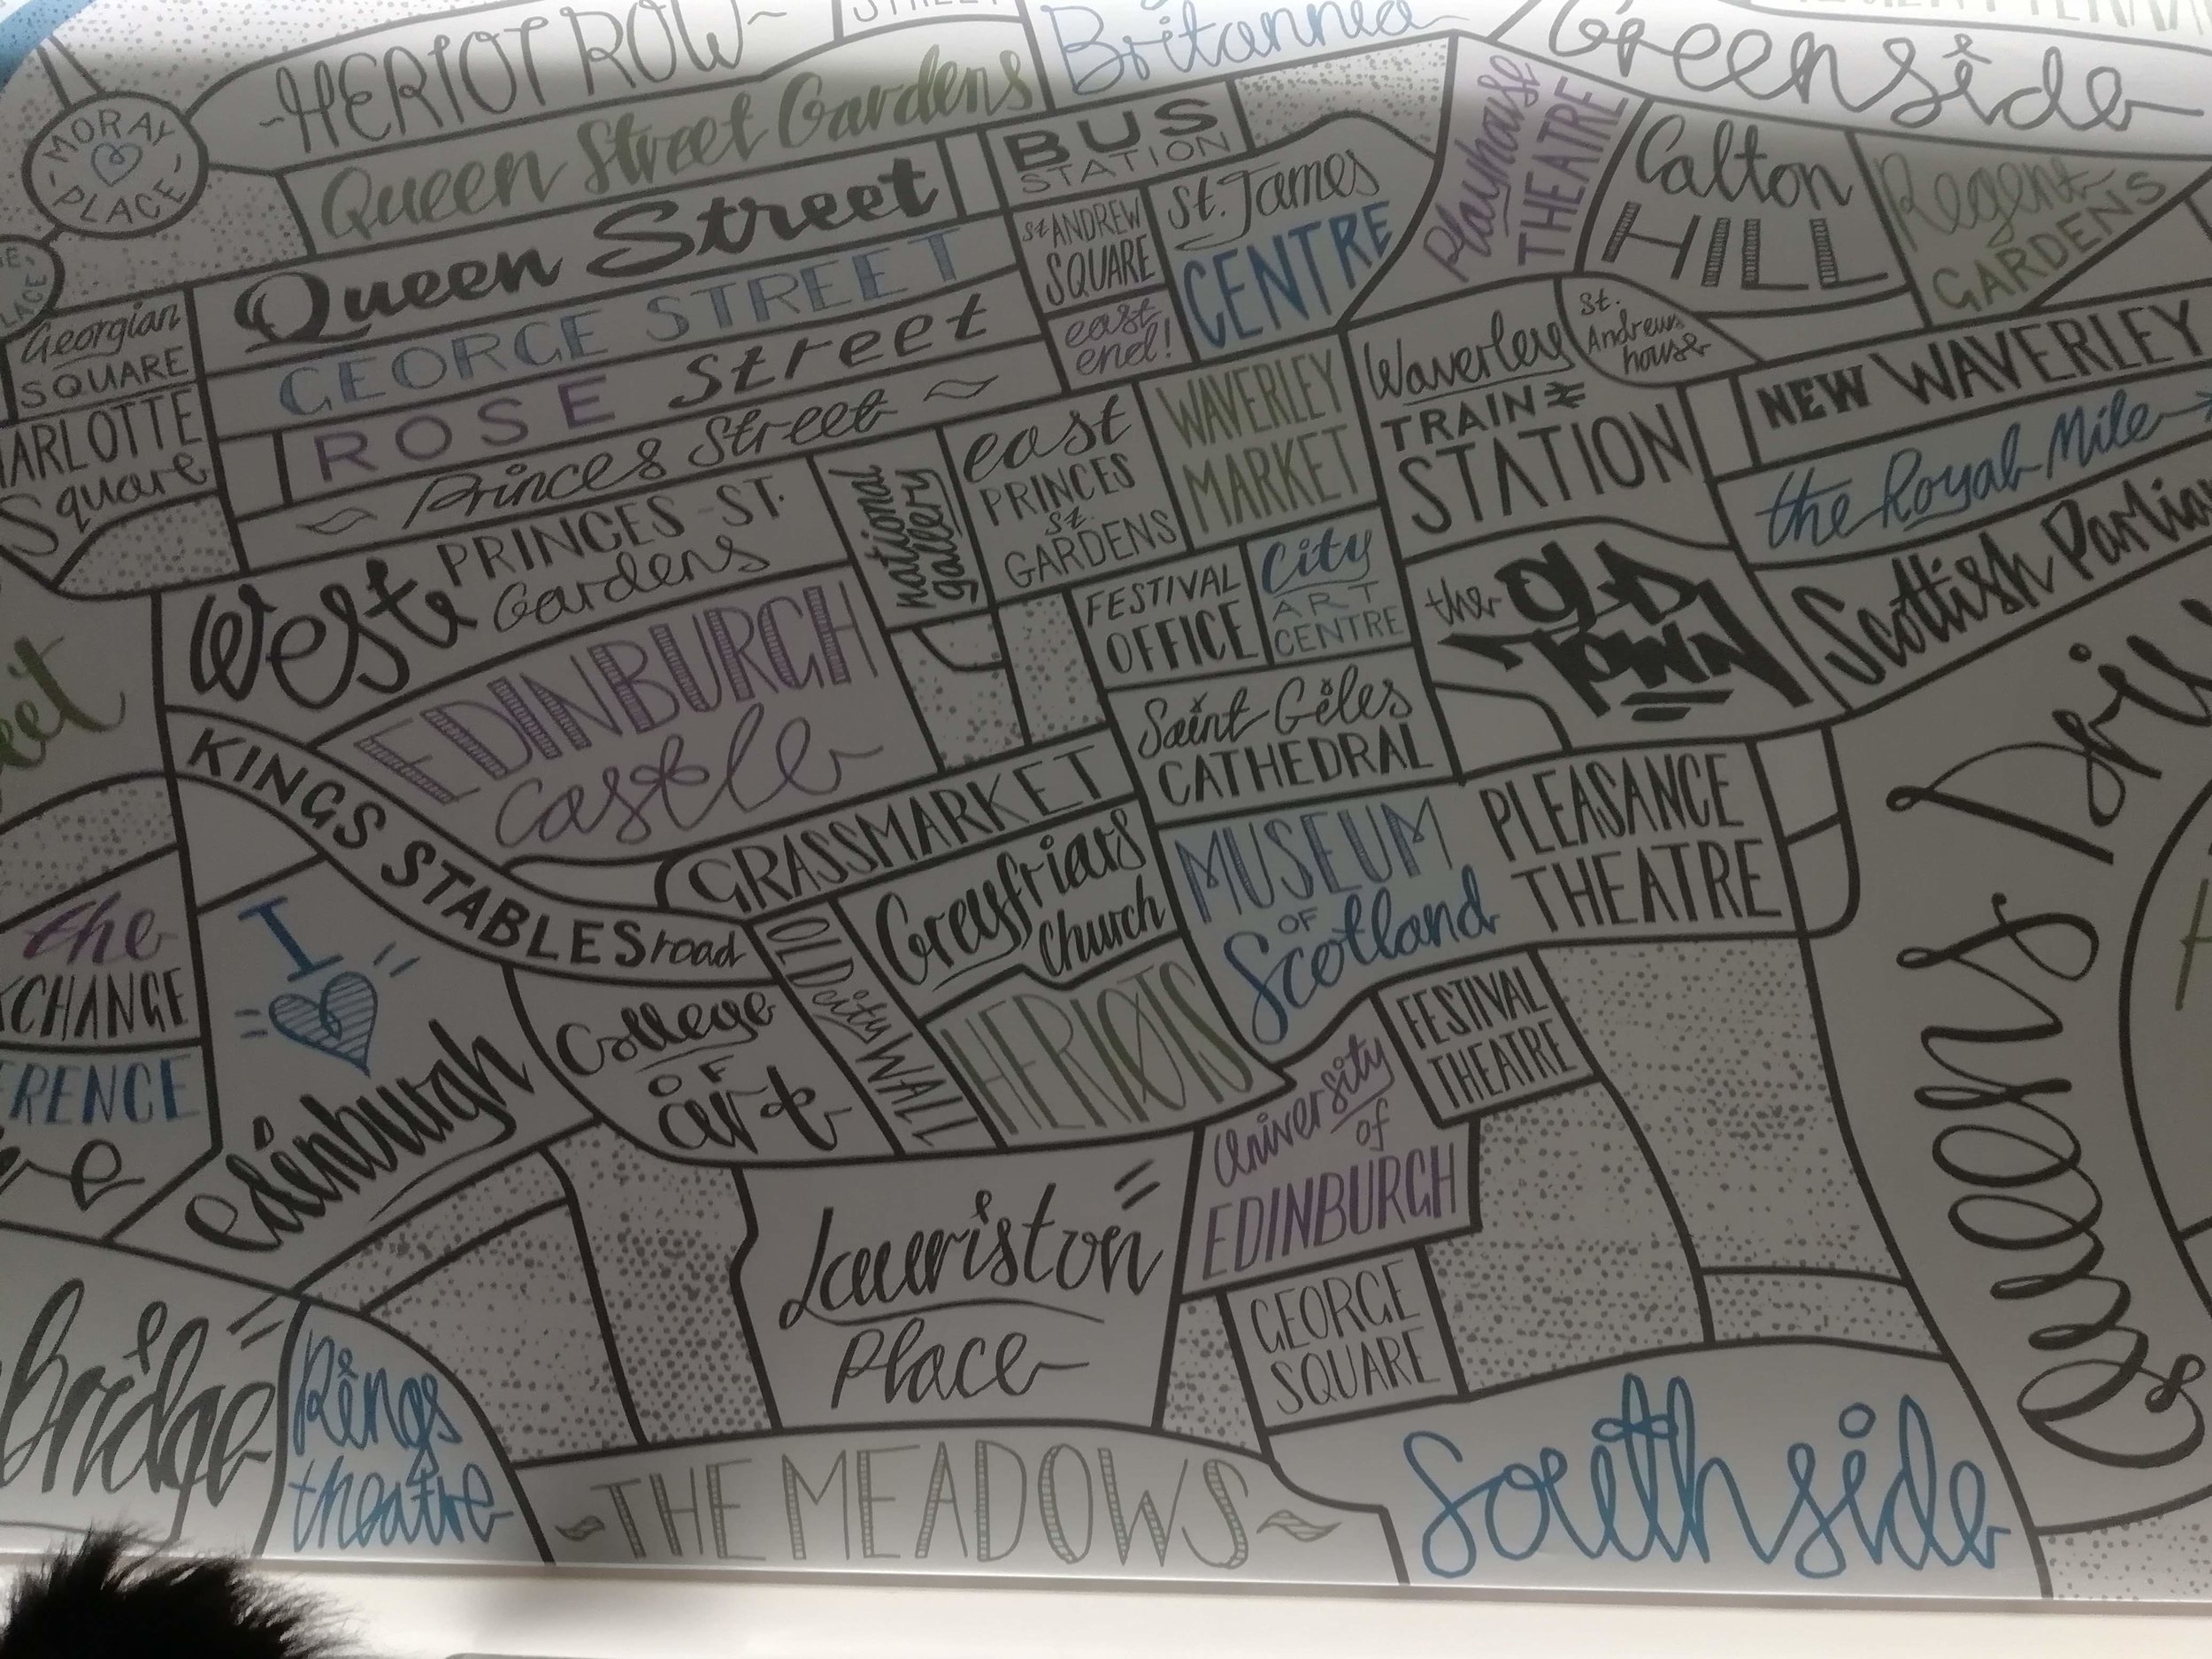 HERIOT ROW
STREET
Britannia
Greenside
MORAY
PLACE
Queen Street Gardens
BUS
STATION
Playhouse
THEATRE
Calton
HILL
Regent
GARDENS
Queen Street
St ANDREW
SQUARE
St. James
CENTRE
GEORGE STREET
east
end!
ROSE Street
Georgian
SQUARE
ARLOTTE
Square
Princes Street
Waverley
TRAIN
STATION
St.
Andrews
house
NEW WAVERLEY
the Royal Mile
West PRINCES ST.
Gardens
national
gallery
east
PRINCES
st.
GARDENS
WAVERLEY
MARKET
FESTIVAL
OFFICE
City
ART
CENTRE
the OLD
TOWN
Scottish Parlia
EDINBURGH
castle
Saint Giles
CATHEDRAL
KINGS STABLES road
GRASSMARKET
Greyfriars
Church
MUSEUM
OF
Scotland
PLEASANCE
THEATRE
Queens Driv
the
XCHANGE
ERENCE
I
edinburgh
College
OF
art
OLD city WALL
HERIOTS
University
of
EDINBURGH
FESTIVAL
THEATRE
Lauriston
Place
GEORGE
SQUARE
Bridge
Kings
theatre
THE MEADOWS
Southside